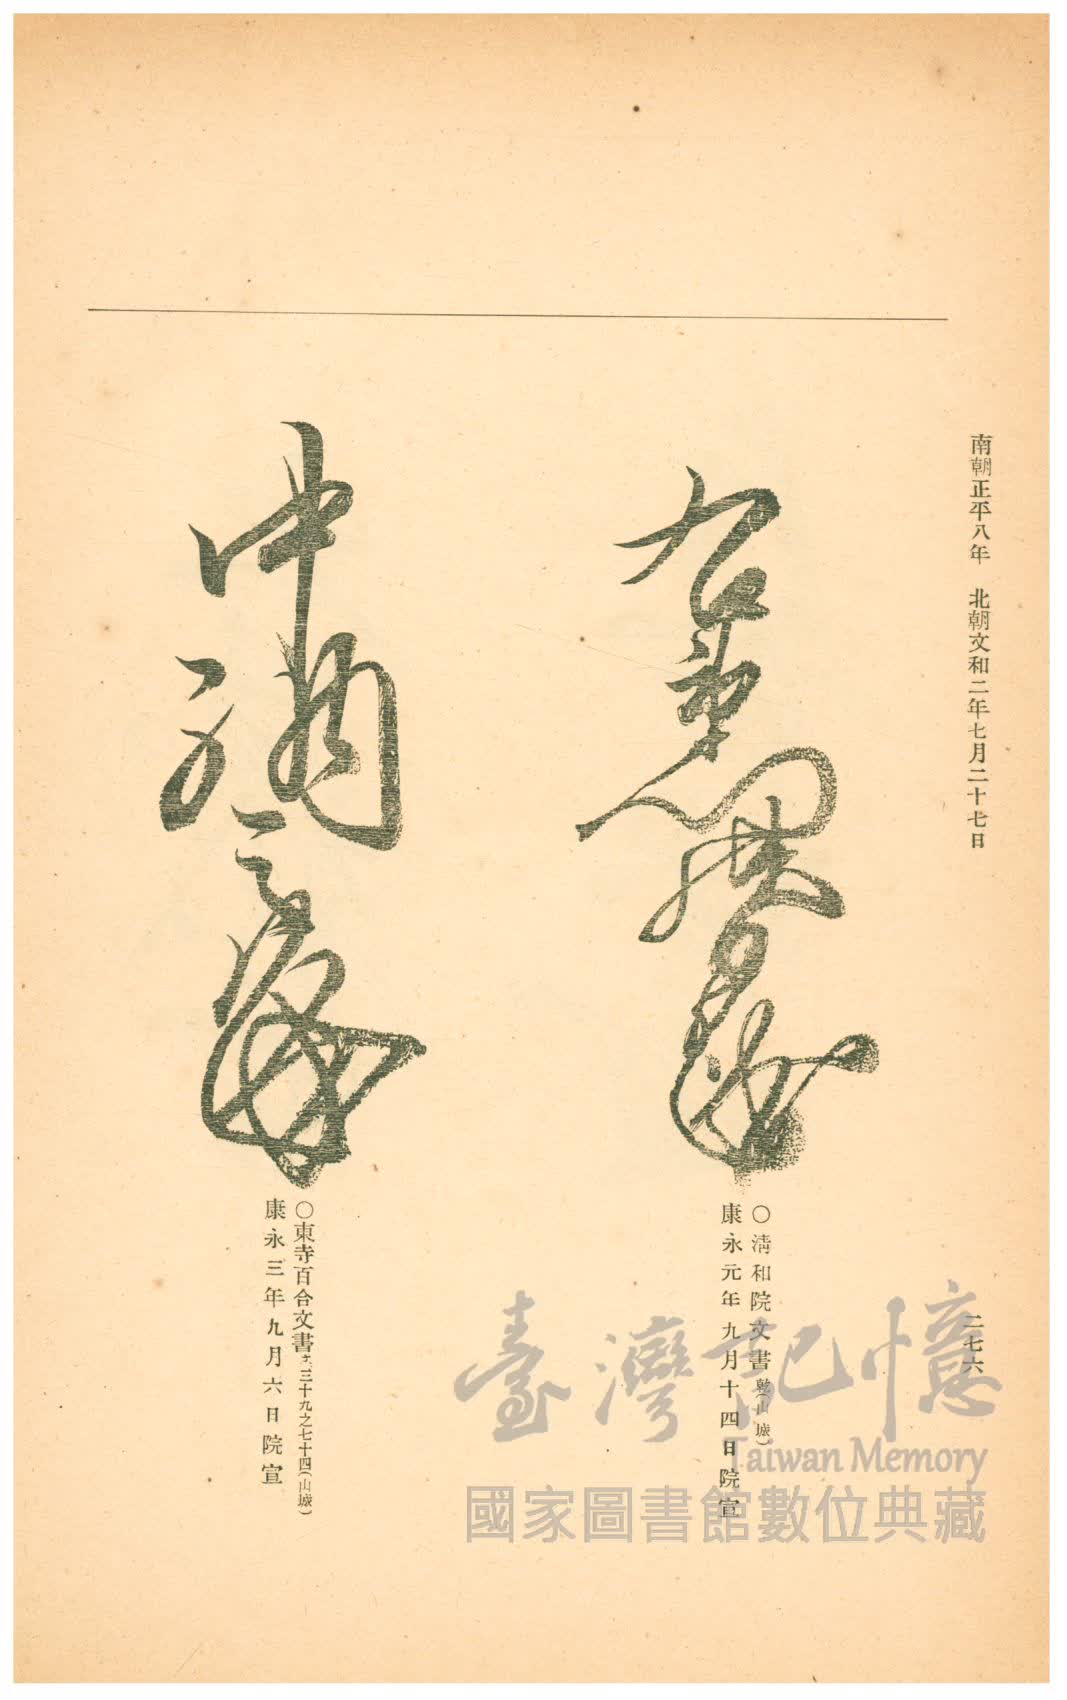 南朝正平八年　北朝文和二年七月二十七日
二七六
○淸和院文書乾(山城)
康永元年九月十四日院宣
中納言
○東寺百合文書ㄊ三十九之七十四(山城)
康永三年九月六日院宣
臺灣記憶
Taiwan Memory
國家圖書館數位典藏